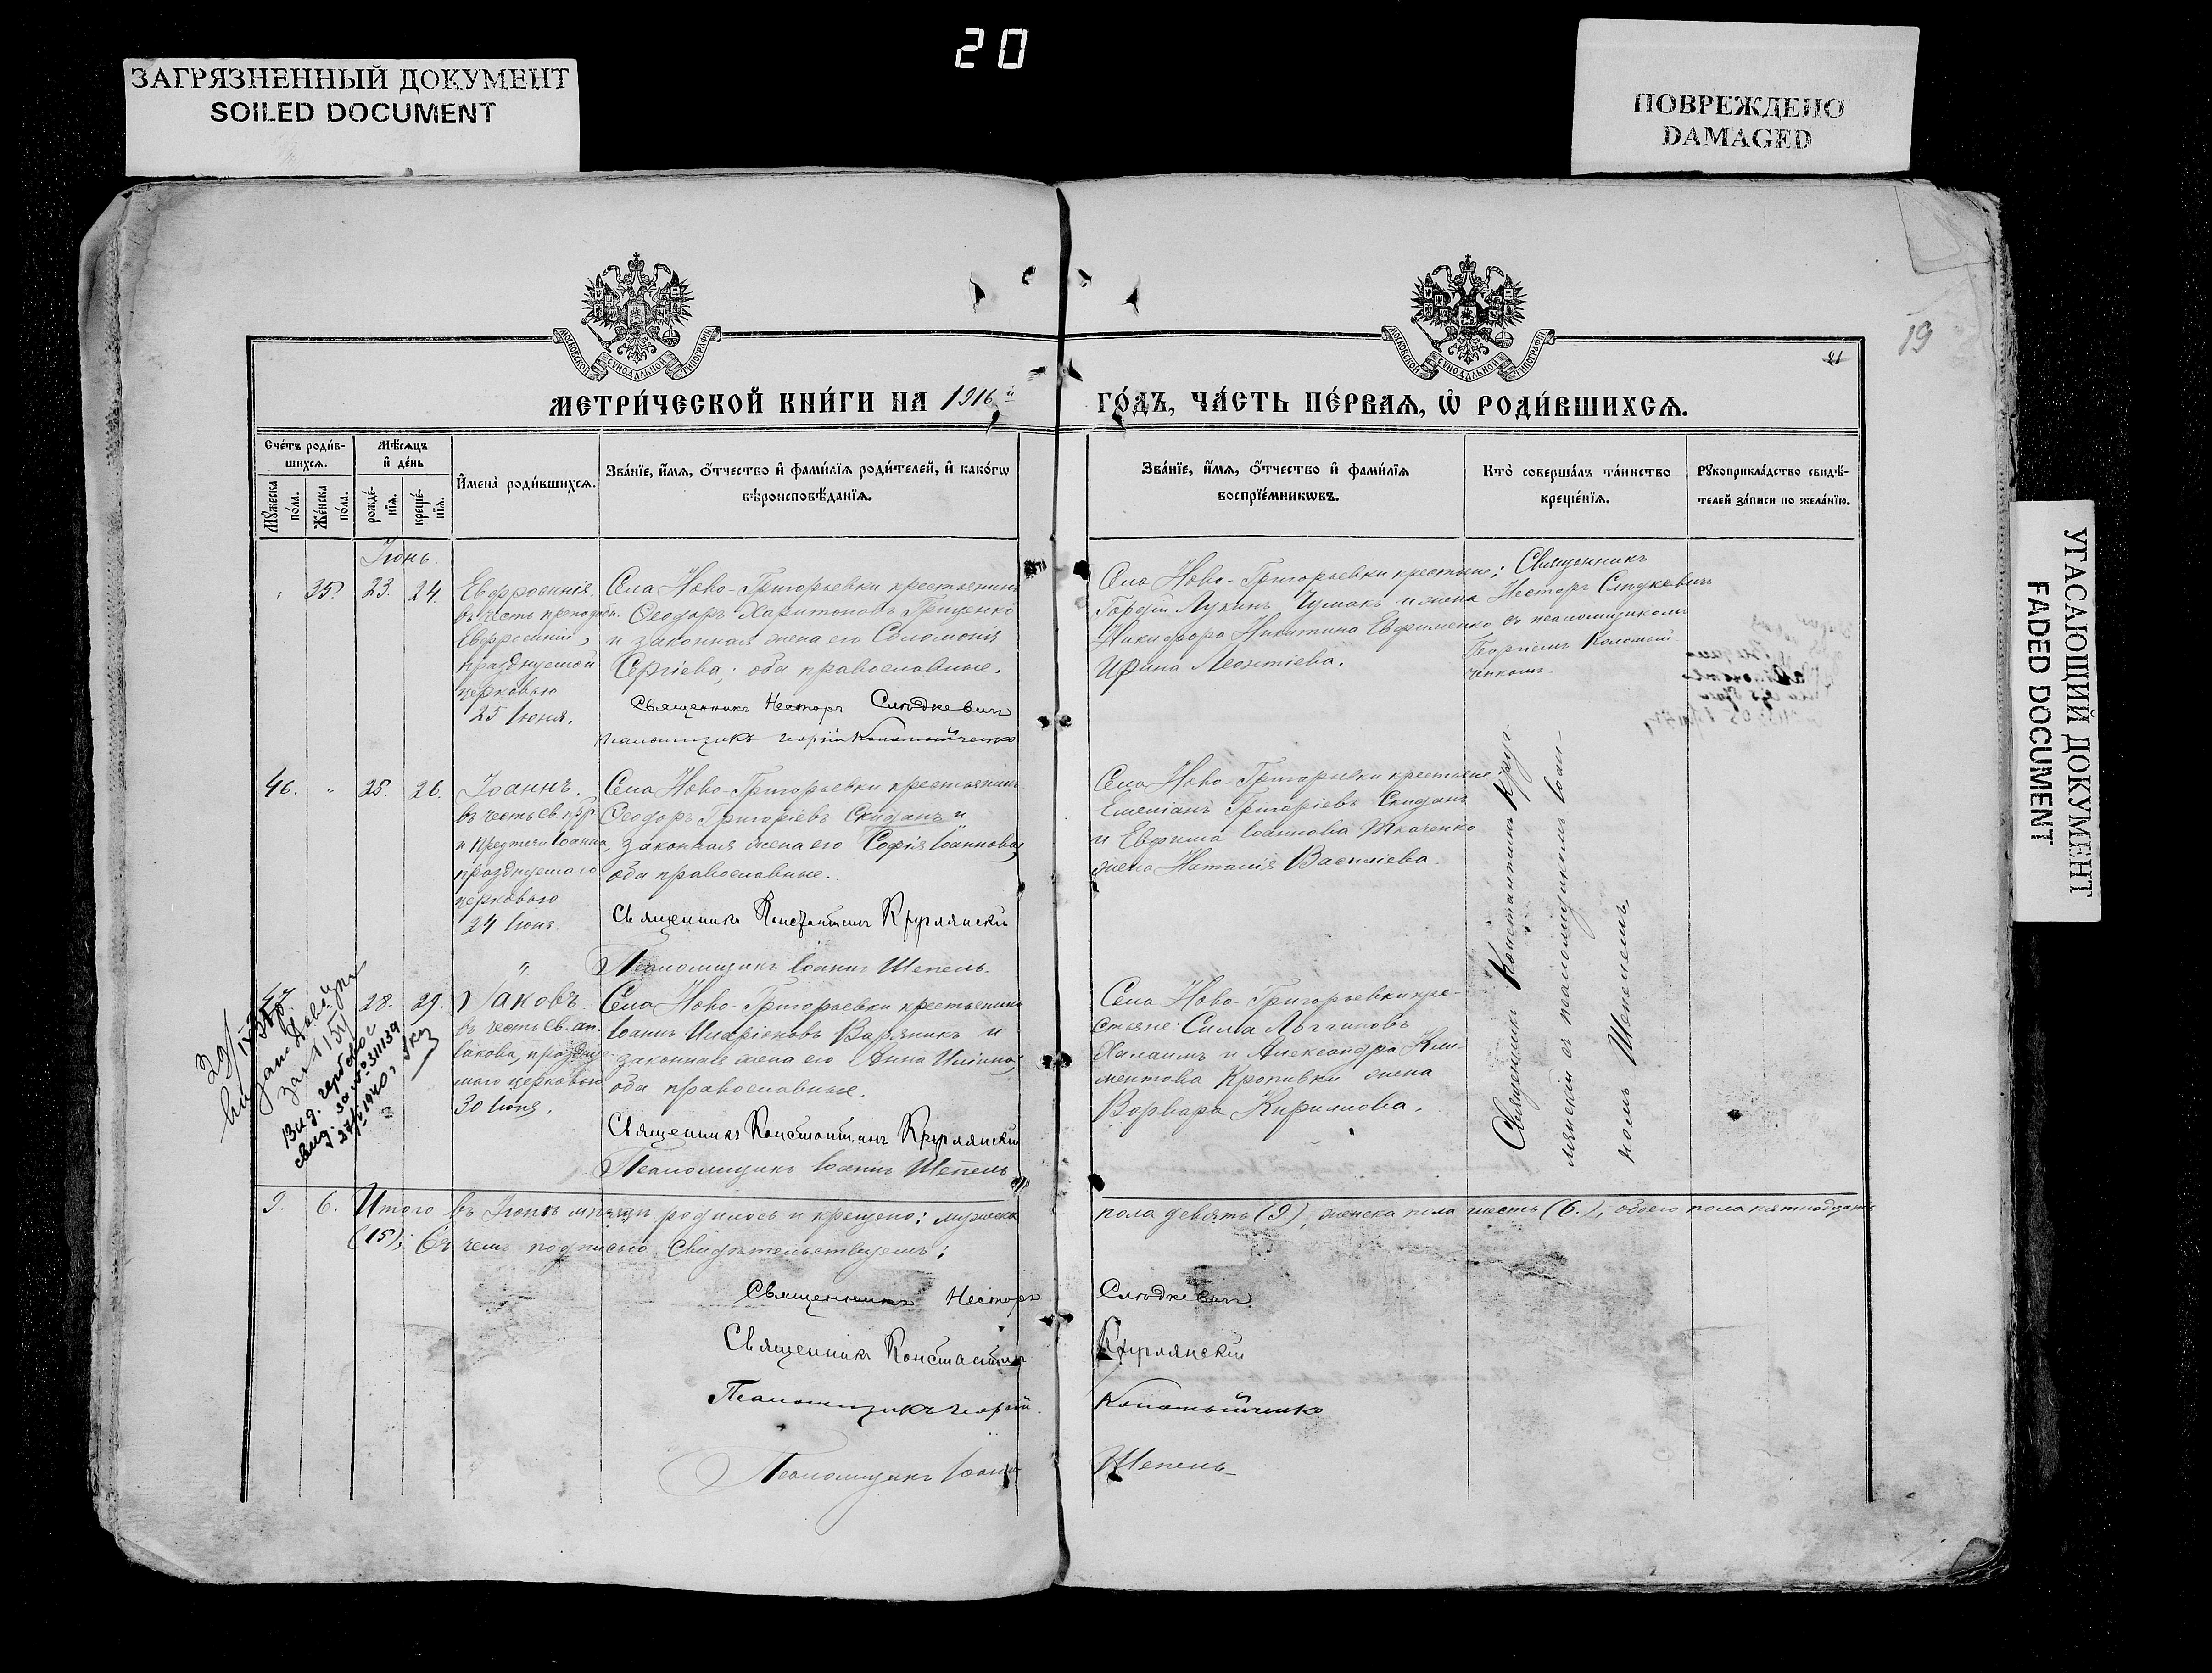 20
ЗАГРЯЗНЕННЫЙ ДОКУМЕНТ
SOILED DOCUMENT
ПОВРЕЖДЕНО
DAMAGED
УГАСАЮЩИЙ ДОКУМЕНТ
FADED DOCUMENT
19
21
МОСКОВСКОЙ СУНОДАЛЬНОЙ ТИПОГРАФІИ
МОСКОВСКОЙ СУНОДАЛЬНОЙ ТИПОГРАФІИ
МЕТРИ́ЧЕСКОЙ КНИ́ГИ НА 1916й
ГО́ДЪ, ЧА́СТЬ ПЕ́РВАЯ, Ѡ҆ РОДИ́ВШИХСЯ.
Сче́тъ роди́в-
шихся.
Мѣ́сяцъ
и҆ де́нь
Мꙋ́жеска
по́ла.
Же́нска
по́ла.
рожде́-
нїя.
креще́-
нїя.
И҆мена̀ роди́вшихся.
Зва́нїе, и҆́мя, ѻ҆́тчество и҆ фами́лїя роди́телей, и҆ како́гѡ
вѣроисповѣ́данїя.
Зва́нїе, и҆́мя, ѻ҆́тчество и҆ фами́лїя
воспрїе́мникѡвъ.
Кто̀ соверша́лъ та́инство
креще́нїя.
Рꙋкоприкла́дство свидѣ́-
телей за́писи по жела́нїю.
Іюнь.
35. 23. 24.
Евфросинія.
въ честь преподобн.
Евфросиніи,
празднуемой
церковью
25 Іюня.
Села Ново-Григорьевки крестьянинъ
Ѳеодоръ Харитоновъ Гриценко
и законная жена его Соломонія
Сергіева; оба православные.
Священникъ Несторъ Слюдкевичъ
Псаломщикъ Георгій Коломыйченко
Села Ново-Григорьевки крестьяне:
Гордій Лукинъ Чумакъ и жена
Никифора Никитина Евфименко
Ирина Леонтіева.
Священникъ
Несторъ Слюдкевичъ
съ псаломщикомъ
Георгіемъ Коломый-
ченкомъ.
46. " 25. 26.
Іоаннъ.
въ честь св. прор.
и Предтечи Іоанна,
празднуемаго
церковью
24 Іюня.
Села Ново-Григорьевки крестьянинъ
Ѳеодоръ Григоріевъ Скиданъ и
законная жена его Софія Іоаннова;
оба православные.
Священникъ Константинъ Круплянскій
Псаломщикъ Іоаннъ Шепель.
Села Ново-Григорьевки крестьяне:
Емеліанъ Григоріевъ Скиданъ
и Евфима Іоаннова Ткаченко
жена Наталія Василіева.
Священникъ Константинъ Круп-
лянскій съ псаломщикомъ Іоан-
номъ Шепелемъ.
47. " 28. 29.
Іаковъ
въ честь св. ап.
Іакова, праздну-
маго церковью
30 Іюня.
Села Ново-Григорьевки крестьянинъ
Іоаннъ Иларіоновъ Варяникъ и
законная жена его Анна Ильина;
оба православные.
Священникъ Константинъ Круплянскій
Псаломщикъ Іоаннъ Шепель
Села Ново-Григорьевки кре-
стьяне: Сила Логгиновъ
Халаимъ и Александра Кли-
ментова Кропивки жена
Варвара Кирилова.
29/IX
Вид. гербове
свид. за №031139
27/I 1940 р.
9. 6. Итого въ Іюнѣ мѣсяцѣ родилось и крещено: мужеска
пола девять (9), женска пола шесть (6.); обоего пола пятнадцать
(15); въ чемъ подписью свидѣтельствуемъ:
Священникъ Несторъ Слюдкевичъ
Священникъ Константинъ Круплянскій
Псаломщикъ Георгій Коломыйченко
Псаломщикъ Іоаннъ Шепель